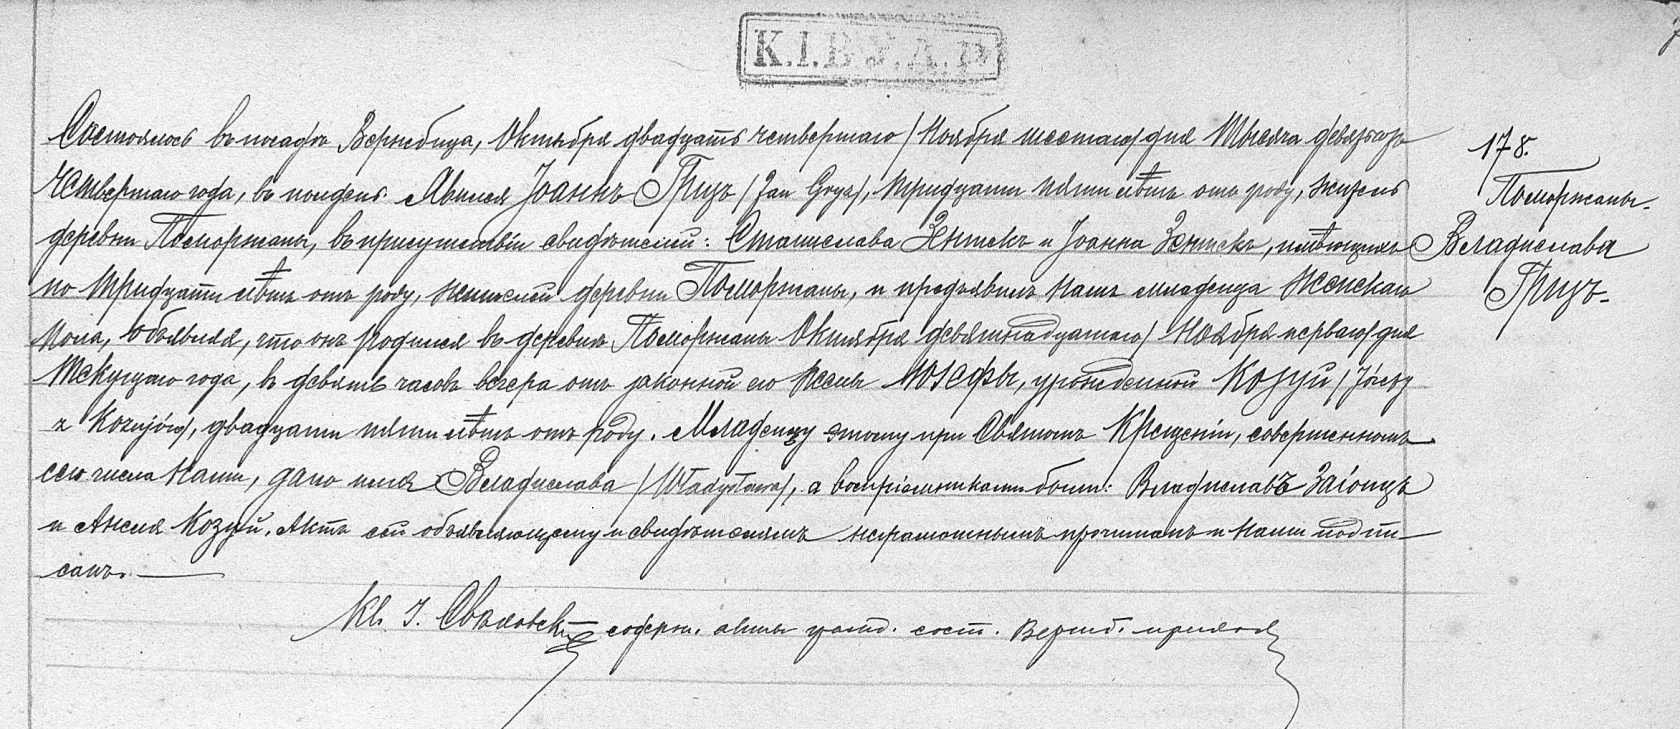 К.І.В.У.А.Р
Состоялось въ посадѣ Вержбица, Октября двадцать четвертаго / Ноября шестаго / дня Тысяча девятьсотъ
четвертаго года, въ полдень. Явился Іоаннъ Грызъ / Jan Gryz /, тридцати пяти лѣтъ отъ роду, житель
деревни Поморжаны, въ присутствіи свидѣтелей: Станислава и Іоанна имѣющихъ
по тридцати лѣтъ отъ роду, жителей деревни Поморжаны, и предъявилъ Намъ младенца женскаго
пола, объявляя, что онъ родился въ деревнѣ Поморжаны Октября девятнадцатаго / Ноября перваго / дня
текущаго года, въ девять часовъ вечера отъ законной его жены Юзефы, урожденной Козуй / Józefy
z Kozujów /, двадцати пяти лѣтъ отъ роду. Младенцу этому при Святомъ Крещеніи, совершенномъ
сего числа Нами, дано имя Владислава / Władysława /, а воспріемниками были: Владиславъ
и Анеля Козуй. Актъ сей объявляющему и свидѣтелямъ неграмотнымъ прочитанъ и Нами подпи-
санъ.
Кс. І. содерж. акты гражд. сост. Вержб. прихода
178.
Поморжаны.
Владислава
Грызъ.